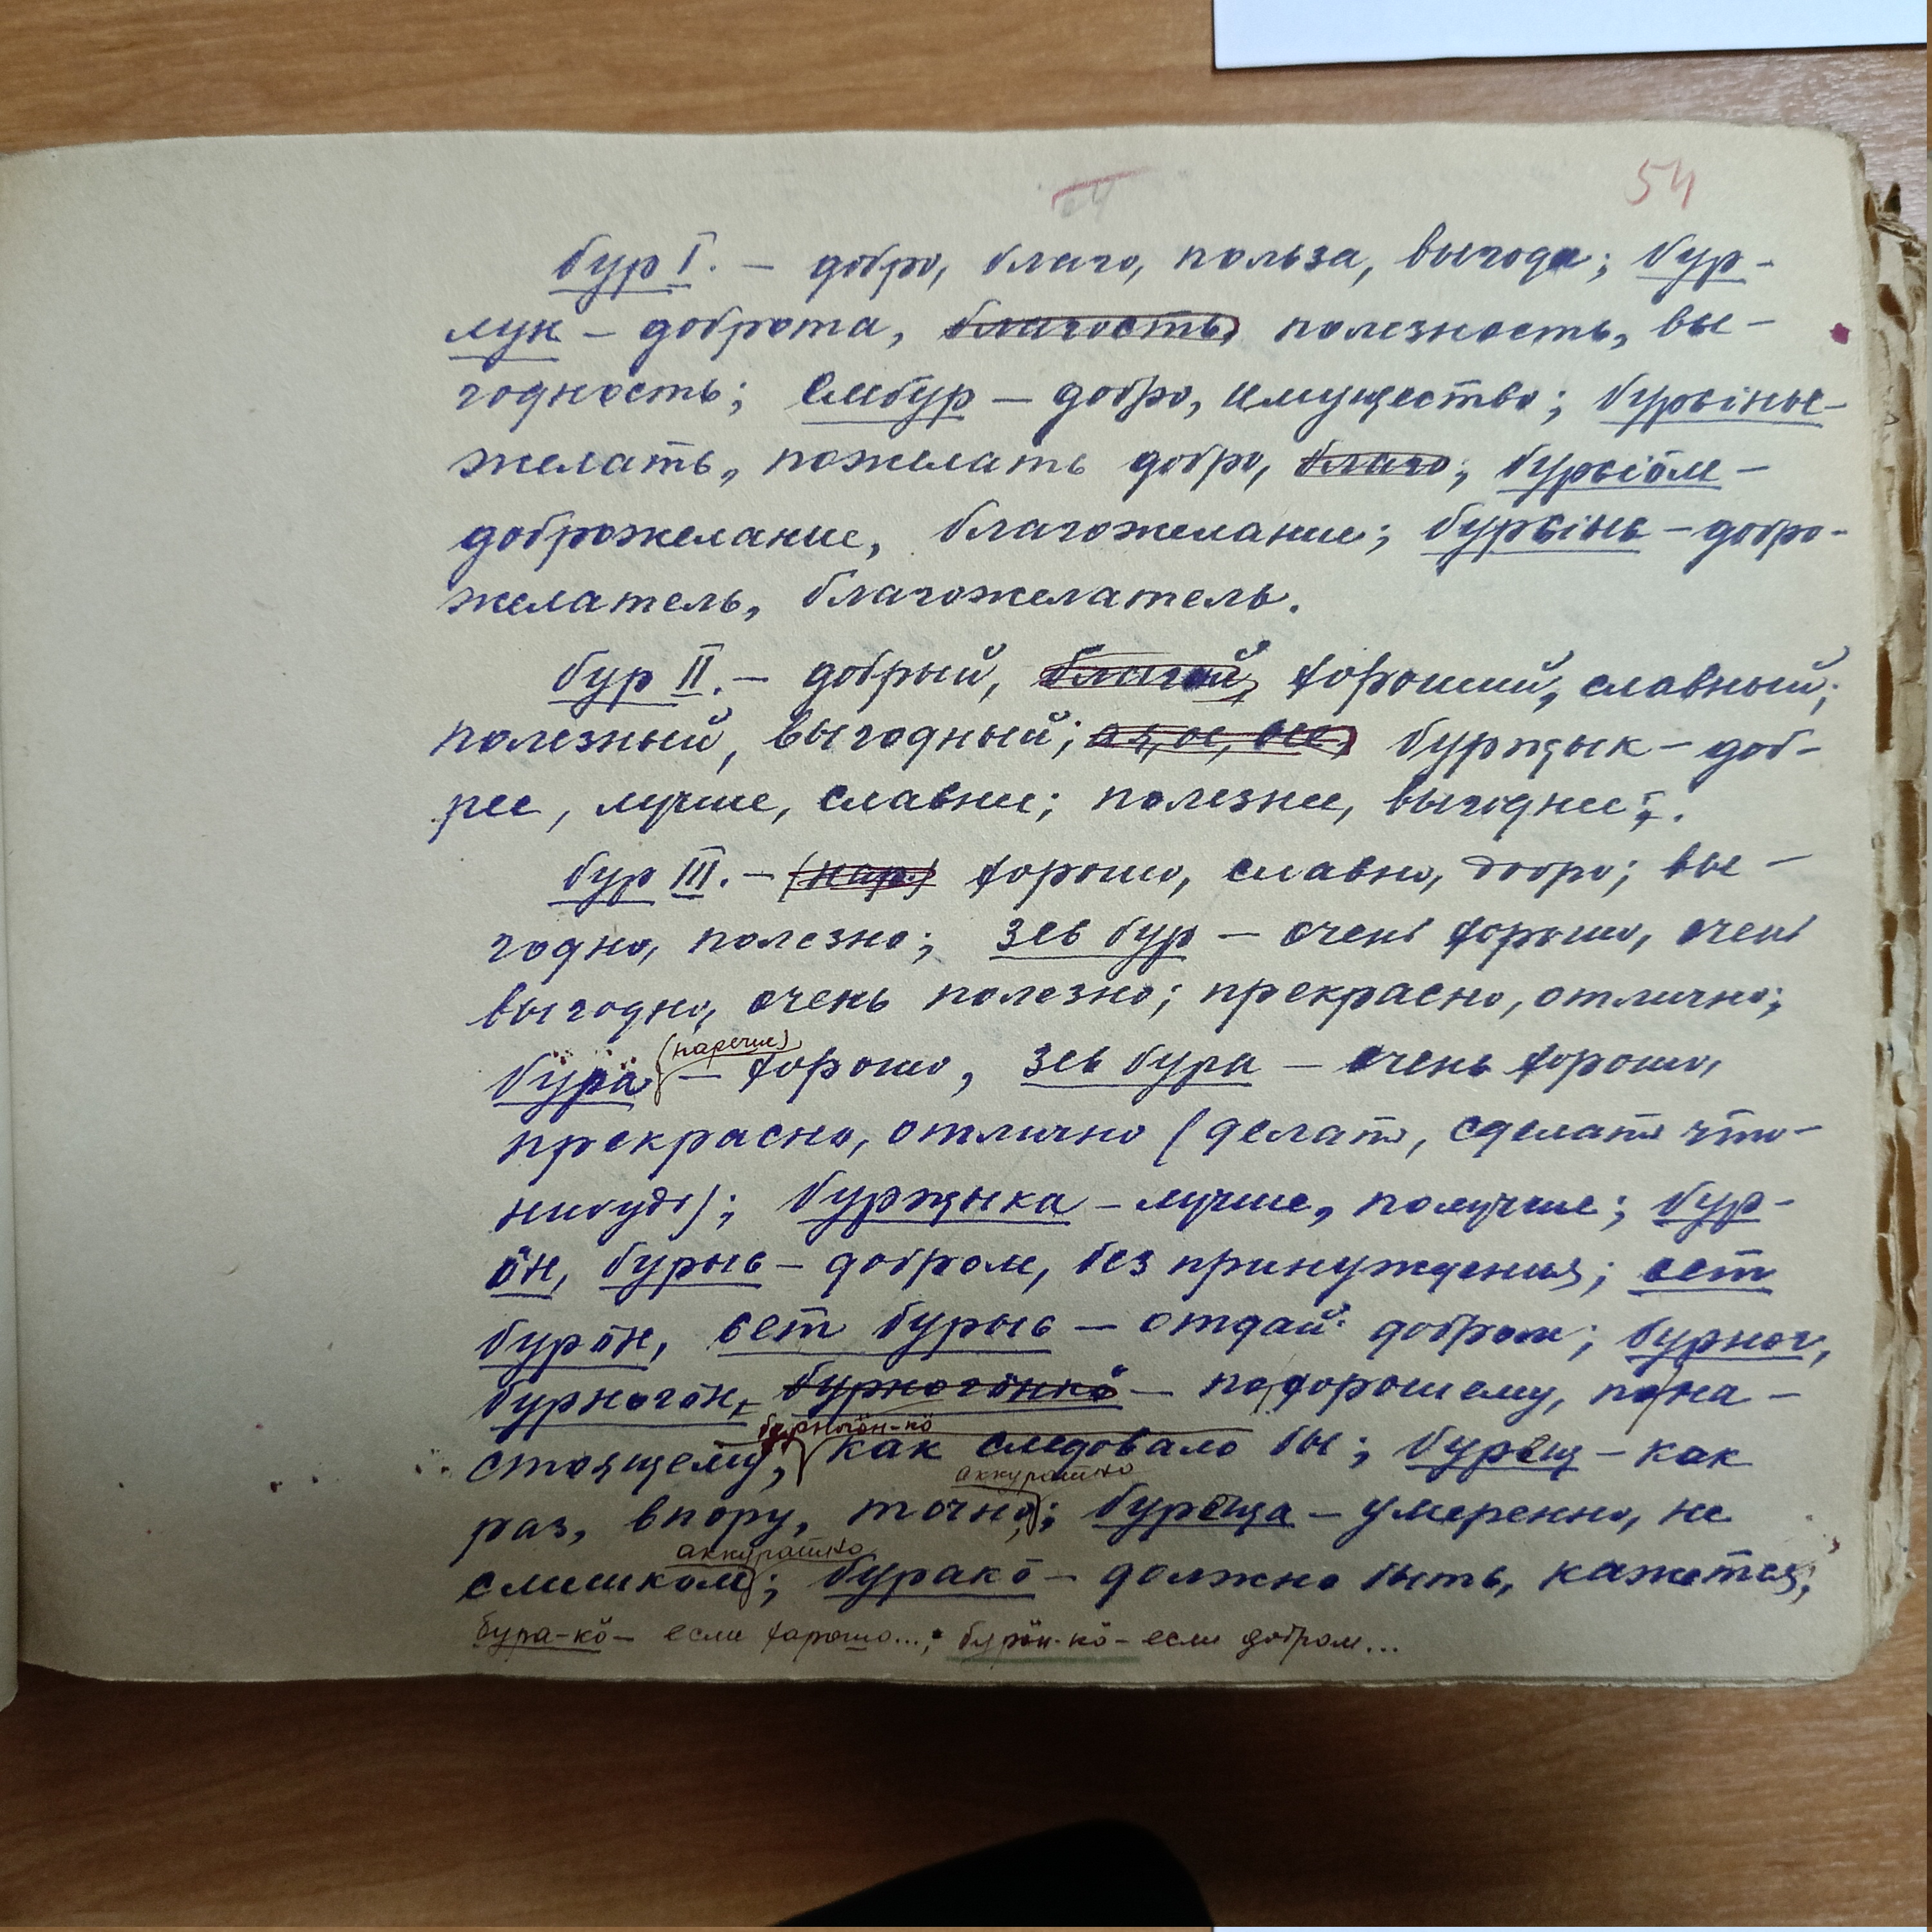 54
бур I. – добро, благо, польза, выгода; бур-
лун – доброта, благость, полезность, вы-
годность; ембур – добро, имущество; бурсіны –
желать, пожелать добро, благо; бурсіӧм –
доброжелание, благожелание; бурсінь – добро-
желатель, благожелатель.
бур II. – добрый, благой, хороший, славный;
полезный, выгодный; бурҗык – доб-
рее, лучше, славнее; полезнее, выгоднее.
бур III. – (нар.) хорошо, славно, добро; вы-
годно, полезно; зев бур – очень хорошо, очень
выгодно, очень полезно; прекрасно, отлично;
(наречие)
бура – хорошо, зев бура – очень хорошо,
прекрасно, отлично (делать, сделать что-
нибудь); бурҗыка – лучше, получше; бур-
ӧн, бурыс – добром, без принуждения; сет
бурӧн, сет бурыс – отдай добром; бурног,
бурногӧн, бурногӧнкӧ – по хорошему, по на-
бурногӧн-кӧ
стоящему, как следовало бы; – как
аккуратно
раз, впору, точно; – умеренно, не
аккуратно
слишком; буракӧ – должно быть, кажется;
бура-кӧ – если хорошо...; бурӧн-кӧ – если добром...